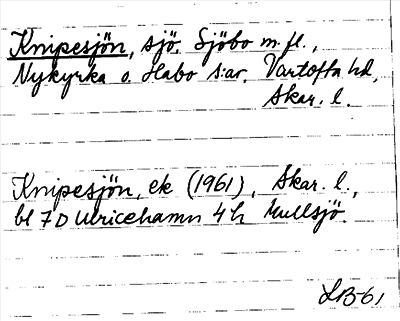 Knipesjön, sjö. Sjöbo m. fl.,
Nykyrka o. Habo s:ar. Vartofta hd,
Skar. l.
Knipesjön, ek (1961), Skar. l.,
bl 7D Ulricehamn 4h Mullsjö.
LB-61